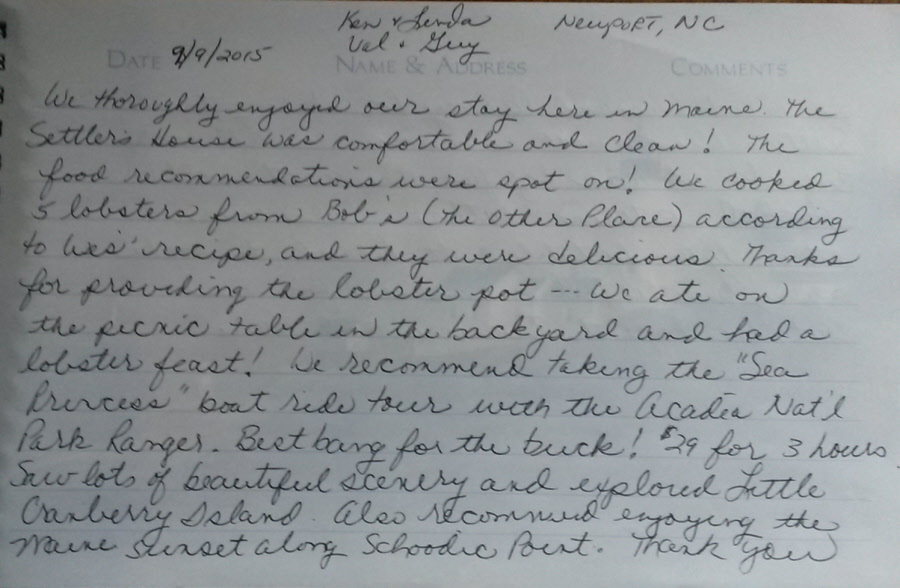 Ken & Linda Newport, NC
Val & Guy
DATE 9/9/2015 NAME & ADDRESS COMMENTS
We thoroughly enjoyed our stay here in Maine. The
Settler's House was comfortable and clean! The
food recommendations were spot on! We cooked
5 lobsters from Bob's (the other Place) according
to Wes' recipe, and they were delicious. Thanks
for providing the lobster pot --- We ate on
the picnic table in the backyard and had a
lobster feast! We recommend taking the "Sea
Princess" boat ride tour with the Acadia Nat'l
Park Ranger. Best bang for the buck! $29 for 3 hours.
Saw lots of beautiful scenery and explored Little
Cranberry Island. Also recommend enjoying the
Maine sunset along Schoodic Point. Thank you